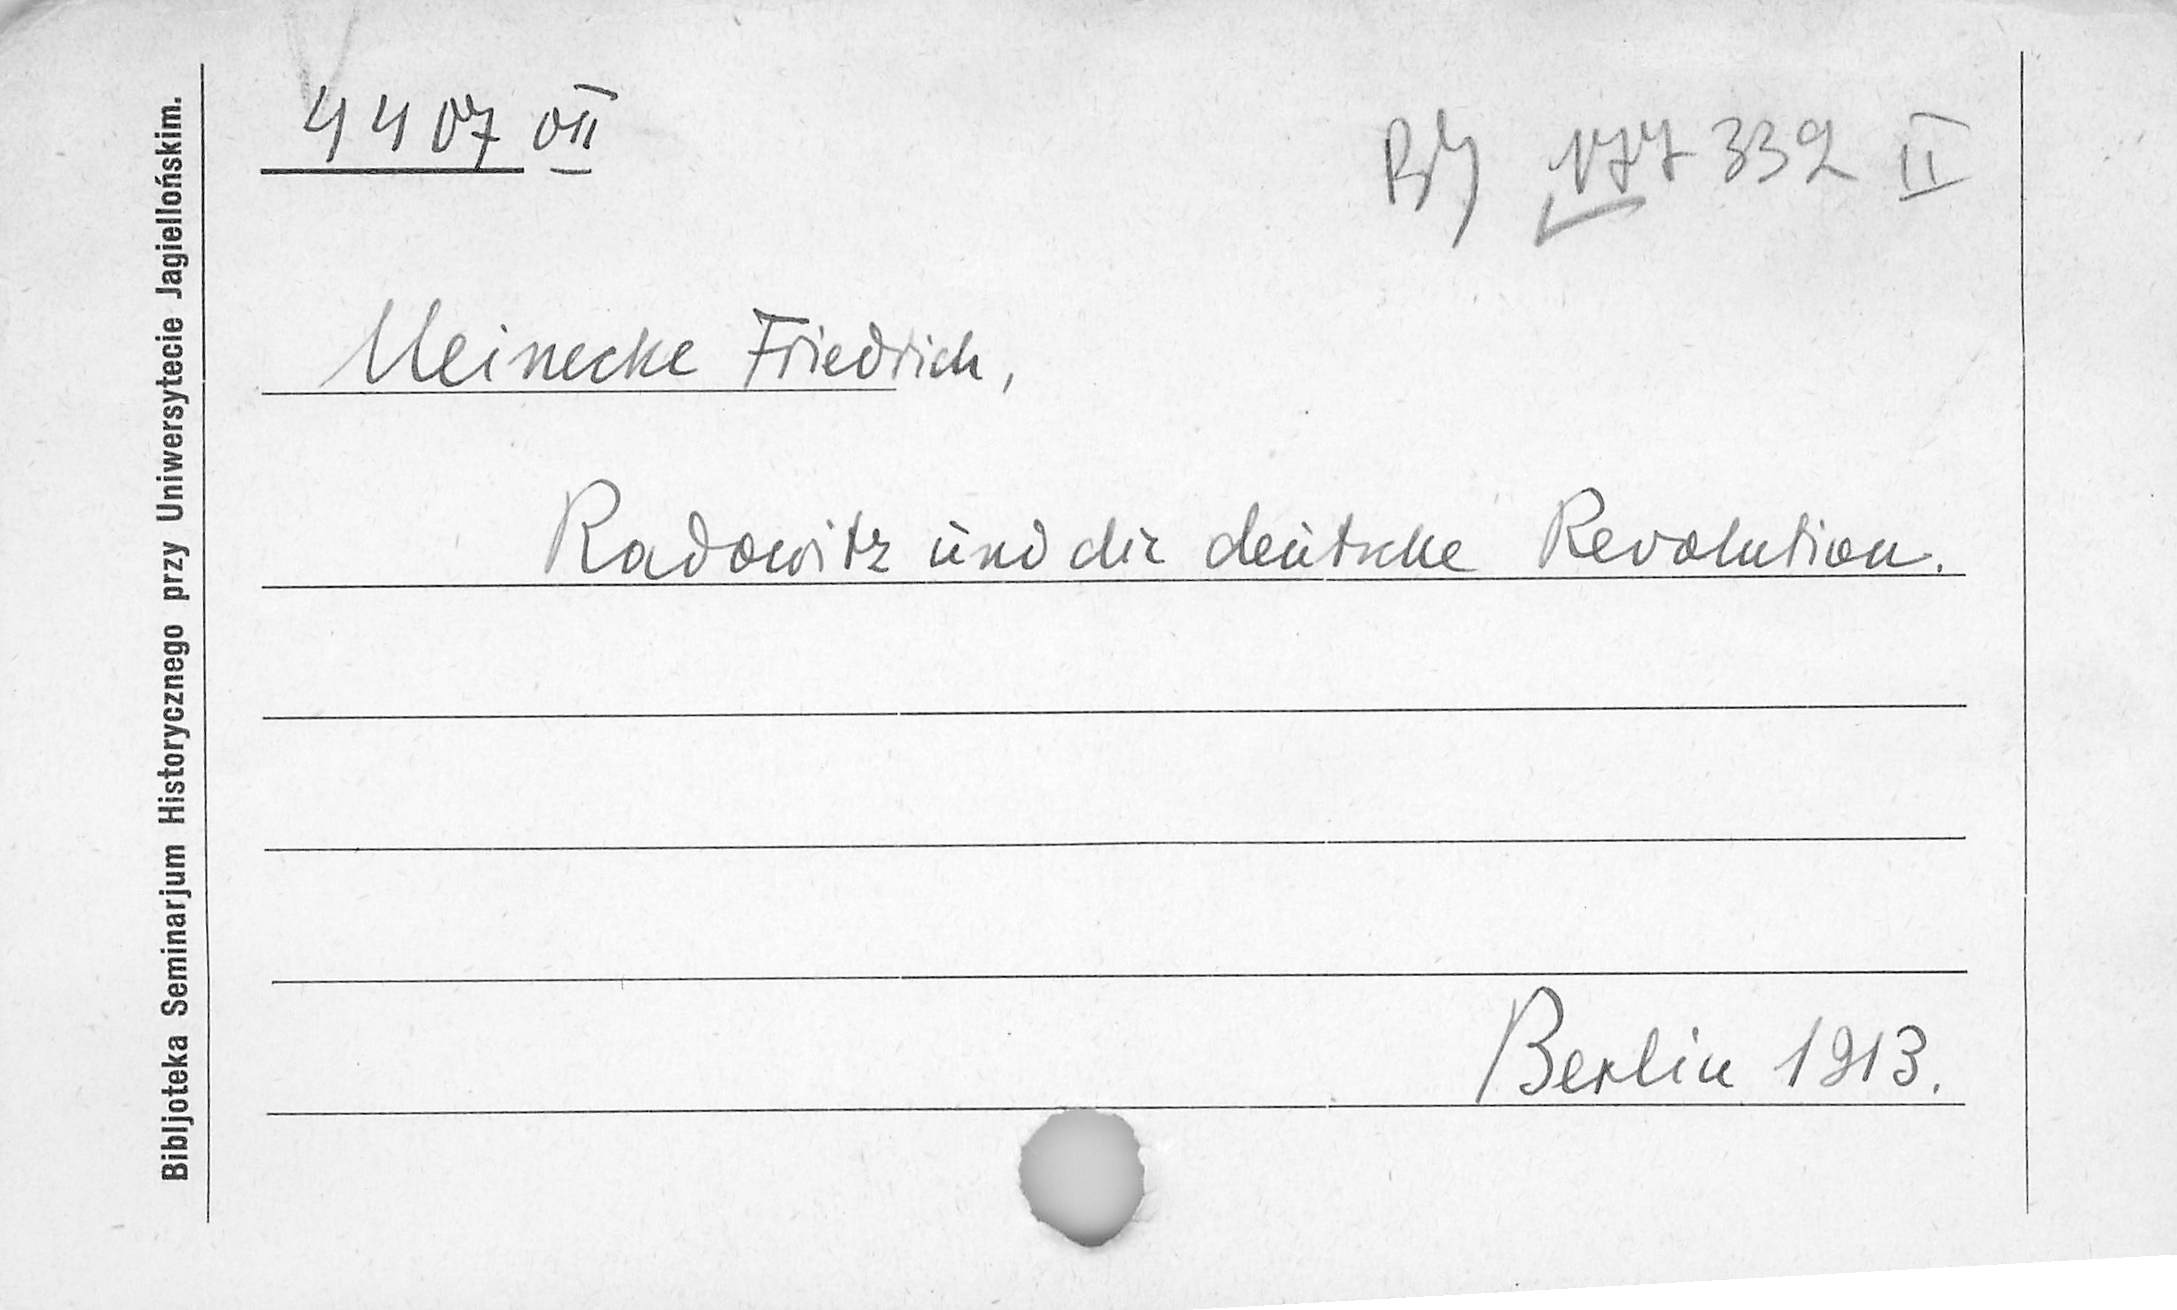 4407 VII
BJ 177 332 II
Meinecke Friedrich,
Radowitz und die deutsche Revolution.
Berlin 1913.
Bibljoteka Seminarjum Historycznego przy Uniwersytecie Jagiellońskim.